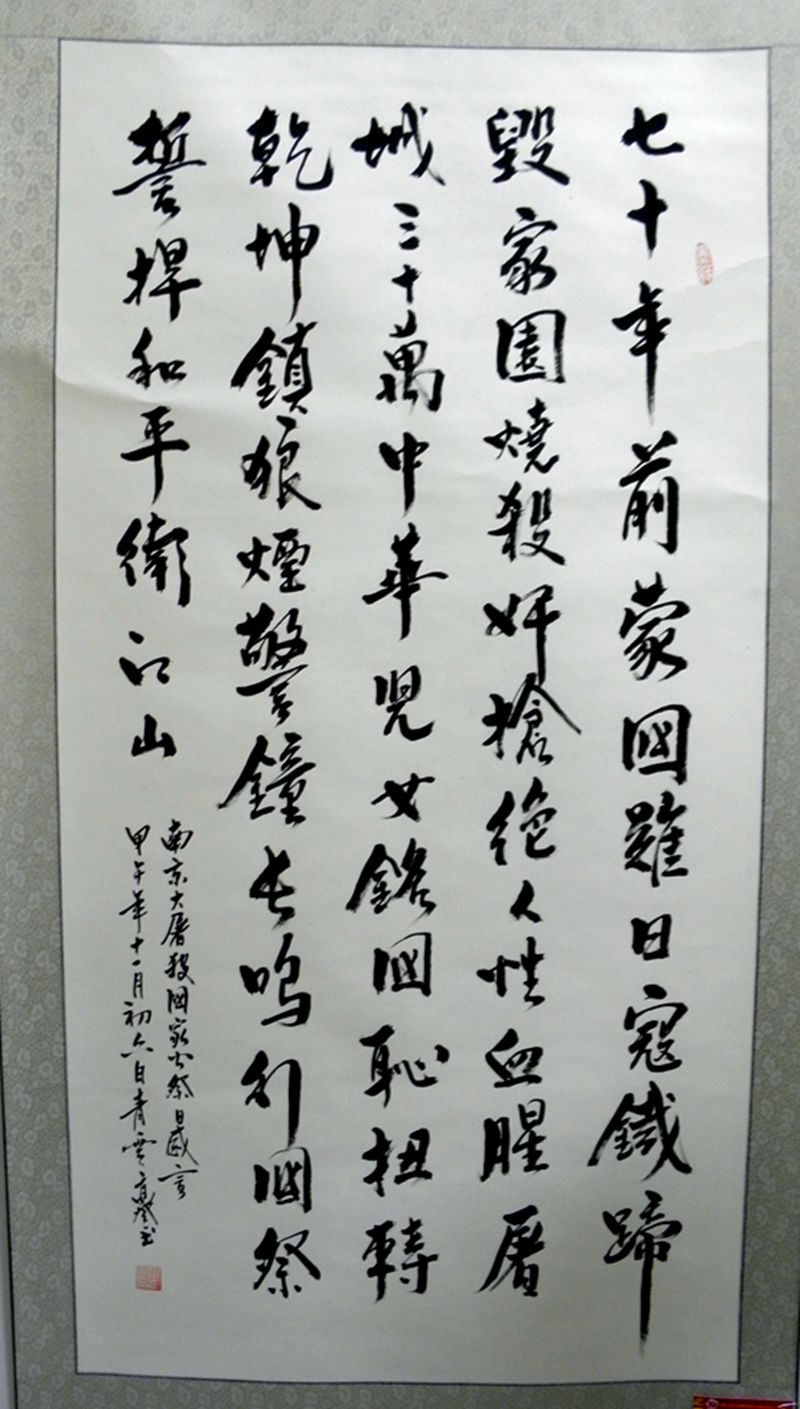 七十年前蒙國難日寇鐵蹄
毀家園燒殺奸搶絕人性血腥屠
城三十萬中華兒女銘國恥扭轉
乾坤鎖狼煙警鐘長鳴行國祭
誓捍和平衛江山
南京大屠殺國家公祭日感言
甲午年十一月初六日青雲